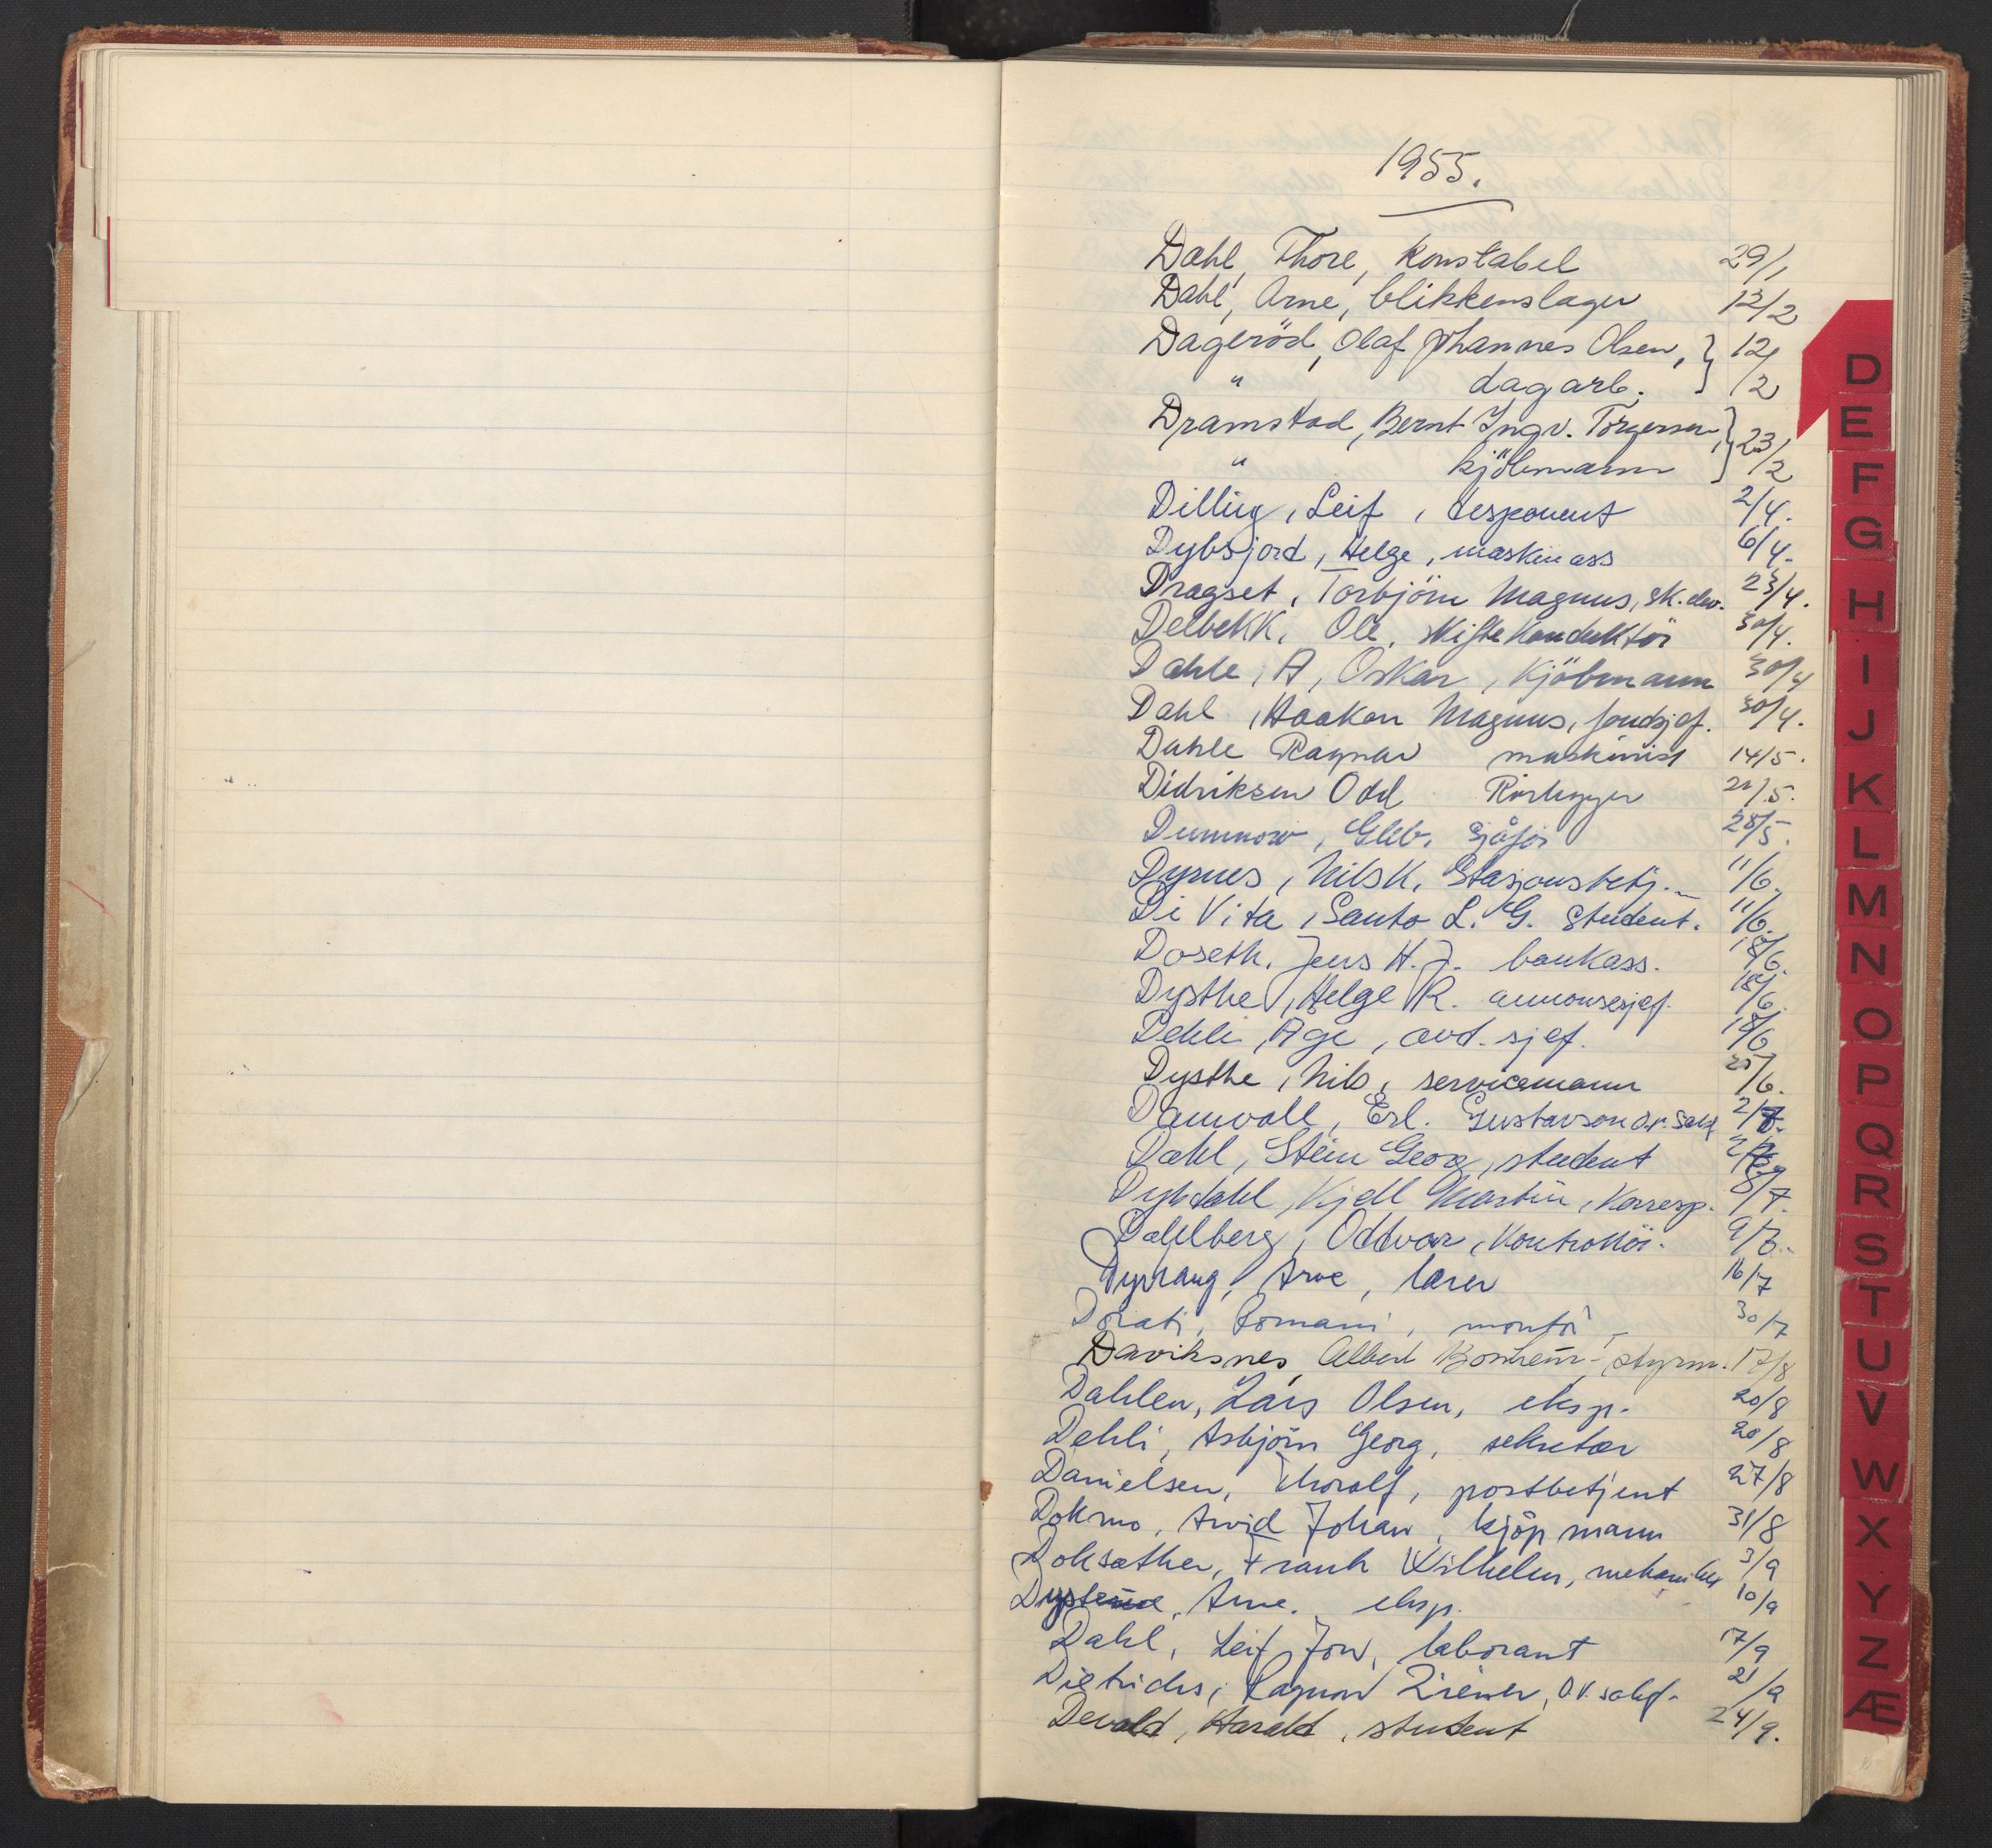 1955.
Dahl, Thore, konstabel 29/1
Dahl, Arne, blikkenslager 12/2
Dageröd, Olaf Johannes Olsen, } 12/2
" dagarb.
Dramstad, Bernt Ingv. Torgersen, } 23/2
" kjöbmann
Dilling, Leif, disponent 2/4.
Dybsjord, Helge, maskinass 6/4.
Dragset, Torbjörn Magnus, sk. elev. 23/4.
Delbekk, Ole, skiftekonduktör 30/4.
Dahle, A, Oskar, Kjöbmann 30/4
Dahl, Haakon Magnus, fondsjef. 30/4.
Dahle Ragnar maskinist 14/5.
Didriksen Odd Rörlegger 21/5.
Gleb, sjåför 28/5.
Dyrnes, Nils K, Stasjonsbetj. 11/6.
Di Vita, Santo L. G. Student. 11/6.
Doseth, Jens H. J. bankass. 18/6.
Dysthe, Helge R. annonsesjef. 18/6.
Dehli, Åge, avd. sjef. 18/6
Dysthe, Nils, servicemann 25/6.
Damvoll, Erl. Gustavson 2/7.
Dahl, Stein Georg, student 2/7.
Dybdahl, Kjell Martin, Korresp. 8/7.
Dahlberg, Oddvar, Kontrollör. 9/7.
Arve, lærer 16/7
Dorati, Romani, montör 30/7
Daviksnes, Albert styrm. 17/8
Dahlen, Lars Olsen, eksp. 20/8
Dehli, Asbjörn Georg, sekretær 20/8
Danielsen, Thoralf, postbetjent 27/8
Dokmo, Arvid Johan, kjöpmann 31/8
Doksæther, Frank Wilhelm, mekaniker 3/9
Arne. eksp. 10/9
Dahl, Leif Jon, laborant 17/9
Dietrichs, Ragnar 21/9
Devold, Harald, student 24/9.
D
E
F
G
H
I
J
K
L
M
N
O
P
Q
R
S
T
U
V
W
X
Y
Z
Æ